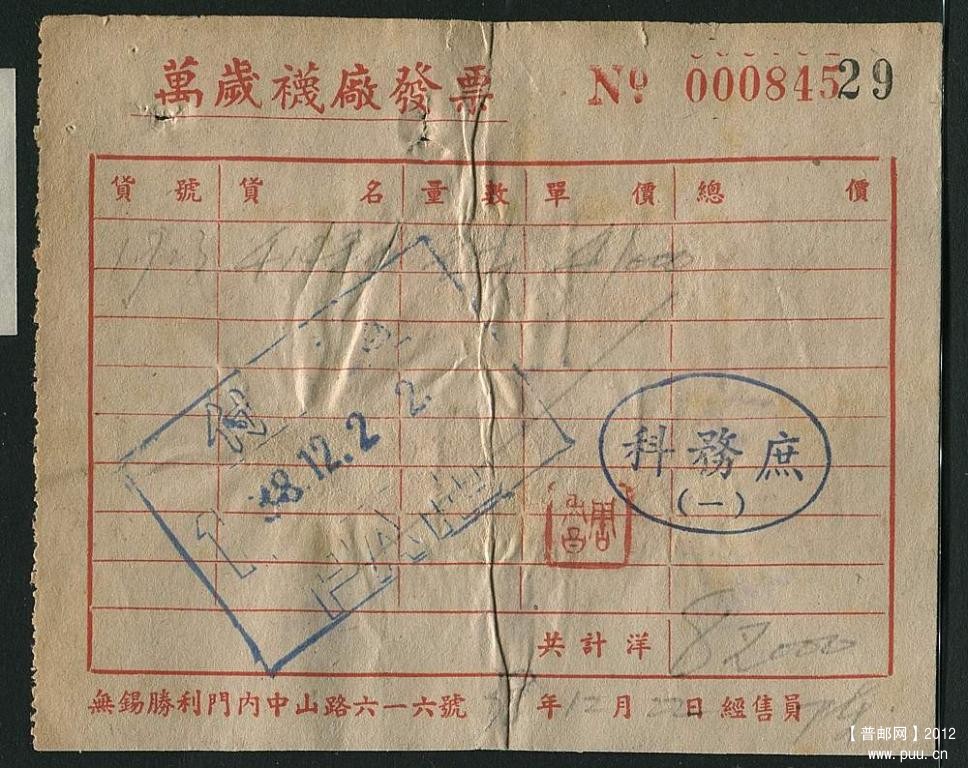 萬歲襪廠發票 Nº 00084529
貨號 貨名 量數 單價 總價
1923 41000
付
38.12.22
PAID
科務庶
(一)
共計洋 82000
無錫勝利門內中山路六一六號 年12月22日 經售員
【普邮网】2012
www.puu.cn